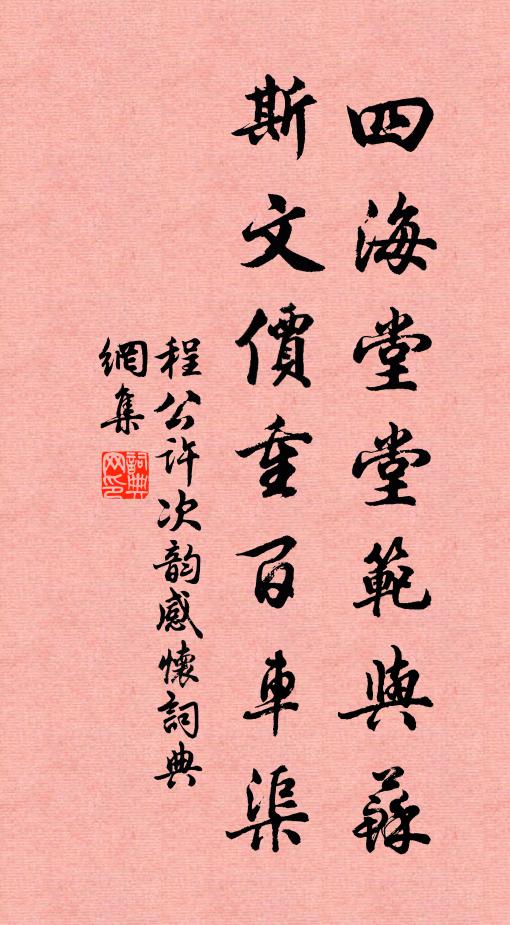 四海堂堂範與蘇
斯文價重百車渠
程公許次韵感懷詞典
網集
詞典网印